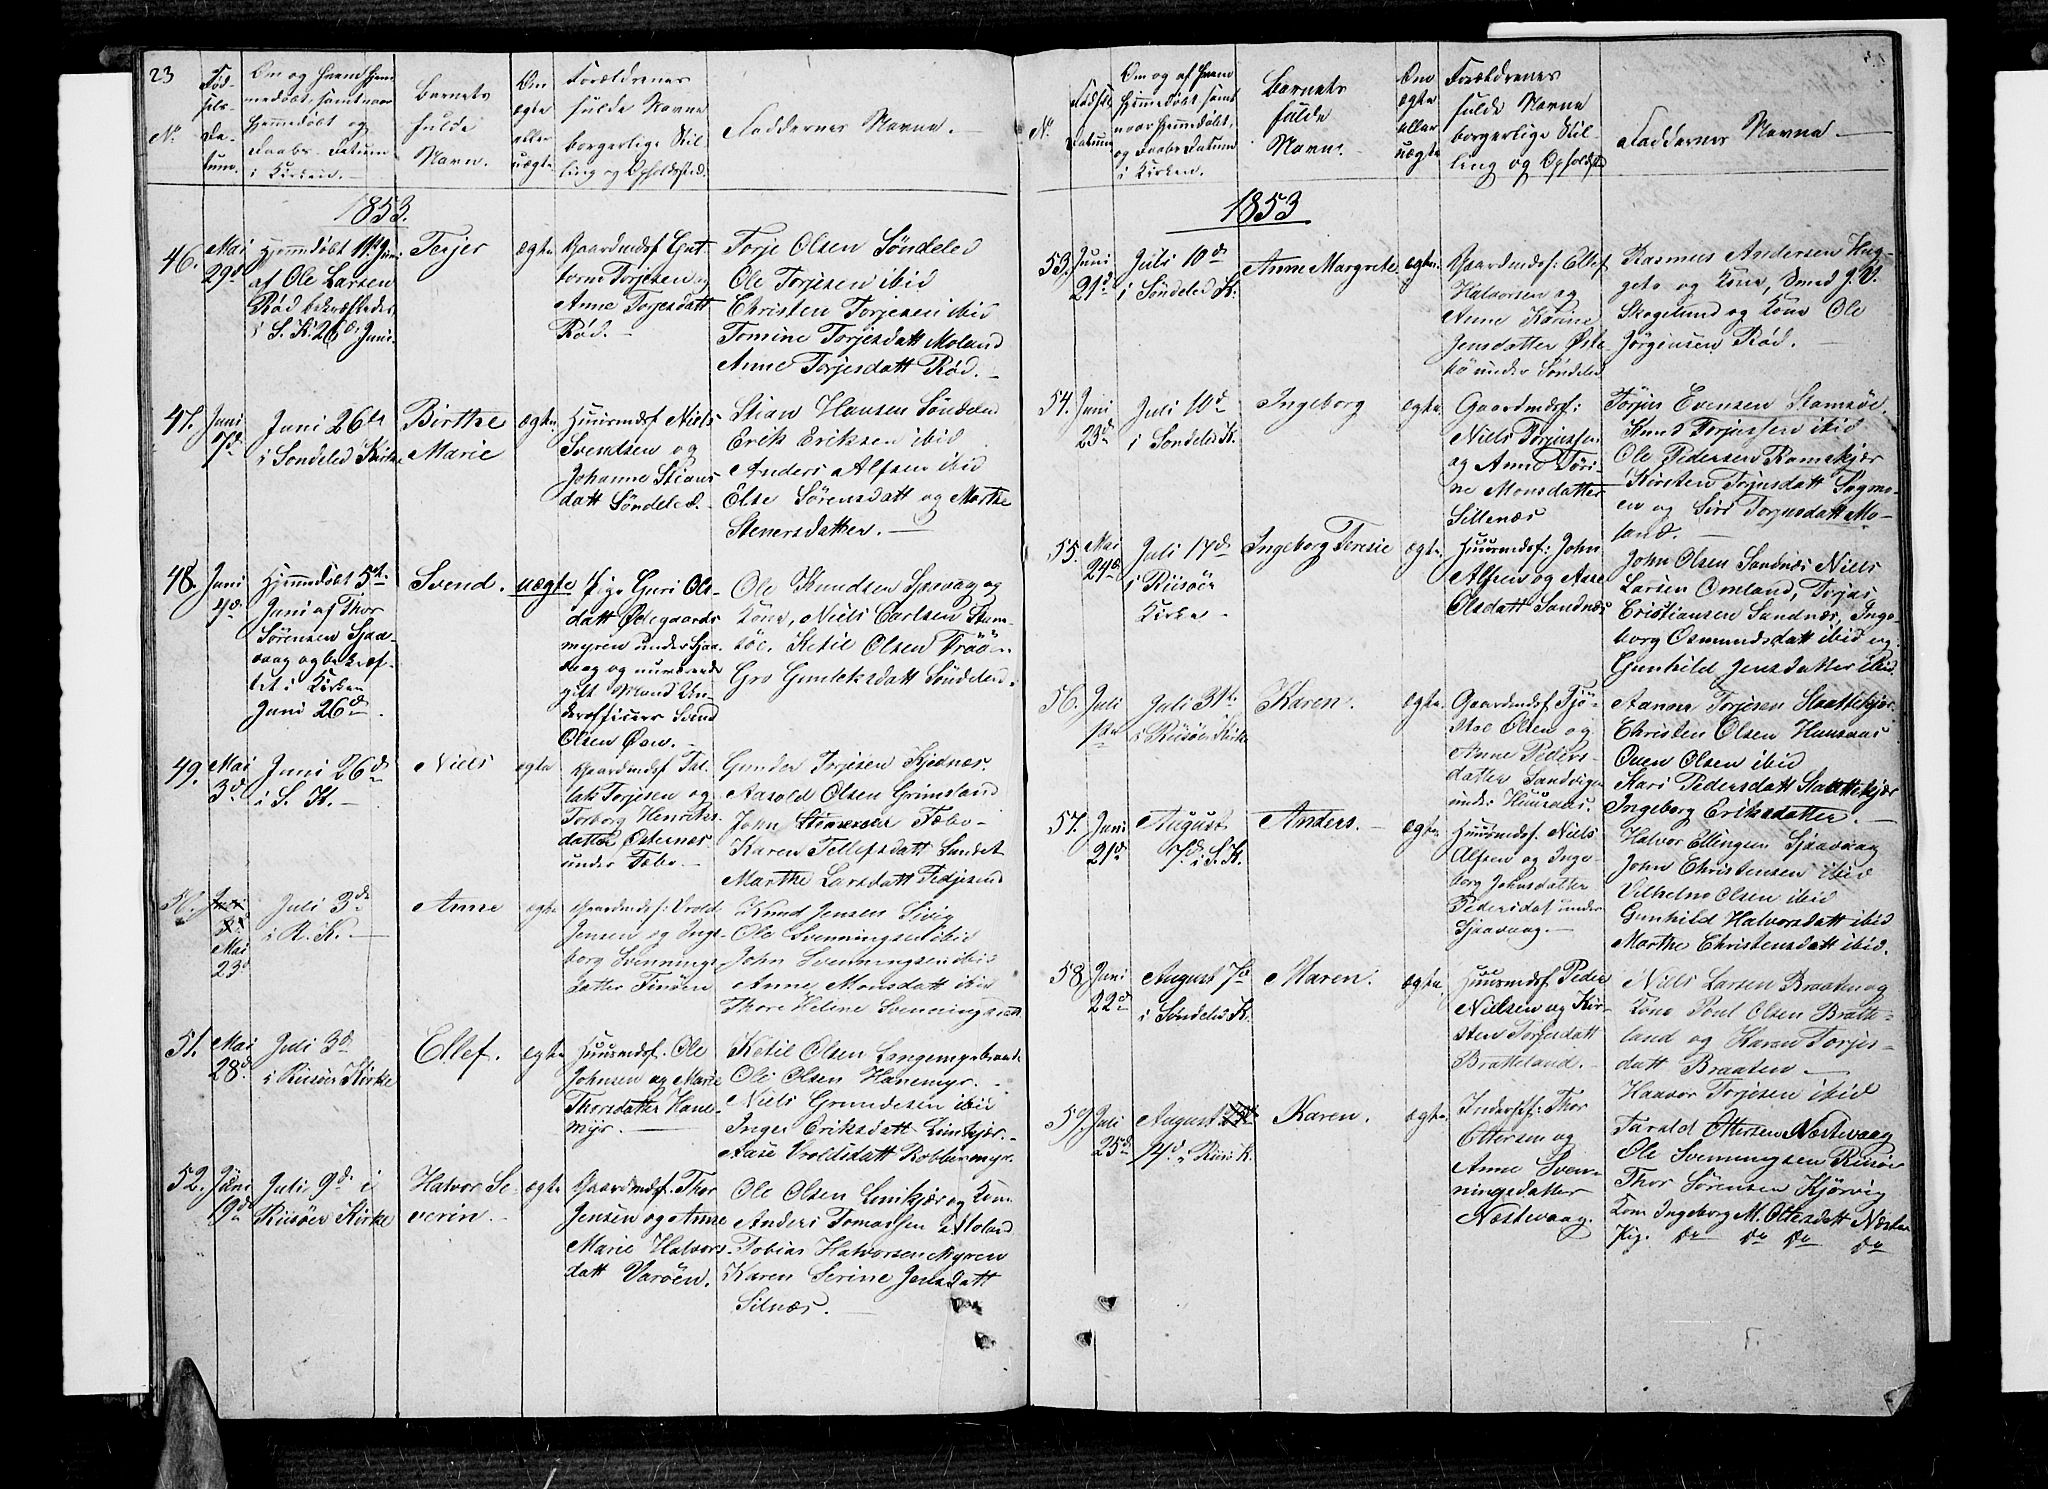 23
No.
Fød-
sels-
Da-
tum.
Om og hvem Hjem
medøbt, samt naar
hjemmedøbt og
Daabs-Datum
i Kirken.
Barnets
fulde
Navn.
Om
ægte
eller
uægte
Forældrenes
fulde Navne
borgerlige Stil-
ling og Opholdssted.
Faddernes Navne.
1853.
46.
Mai
29d
Hjemmedøbt
af Ole Larsen
Rød bekræftedes
i S. K. 26de Juni.
Terjer
ægte
Gaardmdsf. Gut-
torm Torjesen og
Anne Torjesdatt
Rød.
Torje Olsen Søndeled
Ole Torjesen ibid
Christen Torjesen ibid
Tomine Torjesdatt Moland
Anne Torjesdatt Rød.
47.
Juni
Juni 26de
i Søndeled Kirke
Birthe
Marie
ægte
Huusmdsf. Niels
Svendsen og
Johanne Stians
datt Søndeled.
Stian Hansen Søndeled
Erik Eriksen ibid
Anders Alfsen ibid
Else Sørensdatt og Marthe
Stenersdatter.
48
Juni
4de
Hjemmedøbt 5te
Juni af Thor
Sørensen Sjaa-
vaag og bekræf-
tet i Kirken
Juni 26de.
Svend.
uægte
Pige Guri Ols-
datt Ødegaards
myren under Sjaa-
vaag og nuværende
gift Mand Un-
derofficeer Svend
Olsen Øen.
Ole Knudsen Sjaavaag og
Kone, Niels Carlsen Stam-
søe, Ketil Olsen
Gro Gundersdatt Søndeled.
49.
Mai
3d
Juni 26de
i S. K.
Niels
ægte
Gaardmdsf. Tal-
lak Torjesen og
Torborg Henriks-
datter Østernæs
under Fæbo.
Gunder Torjesen Kjednæs.
Aasold Olsen Grimsland
John Fæbo-
Karen Tellefsdatt Sundet
Marthe Larsdatt
50.
Mai
23d
Juli 3de
i R. K.
Anne
ægte
Gaardmdsf: Vrold
Jensen og Inge-
borg Svennings-
datter Finøen
Knud Jensen Sivig
Ole Svenningsen ibid
John Svenningsen ibid
Anne Monsdatt ibid
Thore Helene Svenningsdatt
51.
Mai
28d
Juli 3de
i Riisøer Kirke
Ellef.
ægte
Huusmdsf. Ole
Johnsen og Marie
Thorsdatter Hane-
myr.
Ketil Olsen
Ole Olsen Hanemyr.
Niels Grundesen ibid
Inger Eriksdatt Limkjær.
Aase Vroldsdatt
52.
Juni
9de
Juli 9de i
Riisøer Kirke
Halvor Se-
verin.
ægte
Gaardmdsf. Thor
Jensen og Anne
Marie Halvors-
datt Varøen.
Ole Olsen Limkjær og Kone
Anders Tomassen Moland
Tobias Halvorsen Myren
Karen Serine Jensdatt
Silnæs.
No.
Fødsels
Datum
Om og af hvem
hjemmedøbt samt
naar hjemmedøbt,
og Daabs Datum
i Kirken.
Barnets
fulde
Navn.
Om
ægte
eller
uægte
Forældrenes
fulde Navne
borgerlige Stil-
ling og Opholdst
Faddernes Navne
1853
53.
Juni
21d
Juli 10de
i Søndeled K.
Anne Margrete
ægte
Gaardmdsf: Ellef
Halvorsen og
Anne Karine
Jensdatter Øste
bø under Søndeled
Rasmus Andersen Hag-
geto og Kone, Smed J. V.
Skogelund og Kone Ole
Jørgensen Rød.
54.
Juni
23d
Juli 10de
i Søndeled K.
Ingeborg
ægte
Gaardmdsf:
Niels Torjussen
og Anne Tori-
ne Monsdatter
Sillenæs
Torjus Evensen Stamsøe.
Knud Torjussen ibid
Ole Pedersen Ramskjær
Kirsten Torjusdatt Sagmo-
en og Siri Torjusdatt Mo-
land.
55.
Mai
Juli 17de
i Riisøer
Kirke
Ingeborg Teresie
ægte
Huusmdsf: John
Alfsen og Aase
Olsdatt Sandnæs
John Olsen Sandnæs Niels
Larsen Omland, Torjus
Cristiansen Sandnæs, Inge-
borg Osmundsdatt ibid og
Gunhild Jensdatter ibid
56.
Juli
1ste
Juli 31te
i Riisøer Kirke
Karen.
ægte.
Gaardmdsf. Tjø-
stol Olsen og
Anne Peders-
datter Sandvigen
under Huusaas.
Aanon Torjesen Staattekjær.
Christen Olsen Huusaas
Oven Olsen ibid
Kari Pedersdatt Staattekjær
Ingeborg Eriksdatter.
57.
Juni
21d
August
7de i S. K.
Anders.
ægte
Huusmdsf. Niels
Alfsen og Inge-
borg Johnsdatter
Pedersdal under
Sjaavaag.
Halvor Ellingsen Sjaavaag
John Christensen ibid
Vilhelm Olsen ibid
Gunhild Halvorsdatt ibid
Marthe Christensdatt ibid.
58.
Juni
22d
August 7de
i Søndeled K.
Maren.
ægte
Huusmdsf. Peder
Nielsen og Kir-
sten Torjesdatt
Bratteland.
Niels Larsen Braaten og
Kone Poul Olsen Bratte-
land og Karen Torjes-
datt Braaten
Haavor Torjesen ibid
59.
Juli
25de
August
14d i Riisø K.
Karen.
ægte.
Inderstf: Thor
Ottersen og
Anne Sven-
ningsdatter
Næstevaag.
Tarald Ottersen Næstevaag
Ole Svenningsen Riisøe
Thor Sørensen Kjørvig
Kone Ingeborg M. Ottersdatt Næstev
Pig. Do Do Do Do